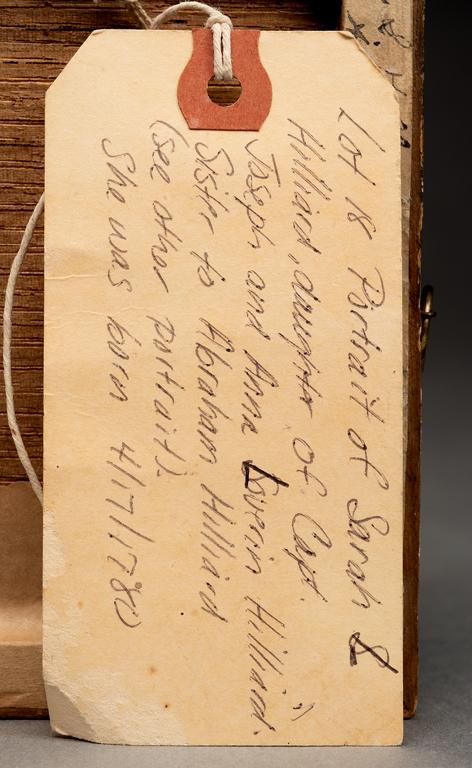 Lot 18 Portrait of Sarah L
Hilliard, daughter of Capt.
Joseph and Anna Liverin Hilliard.
Sister to Abraham Hilliard
(see other portrait).
She was born 4/17/1780